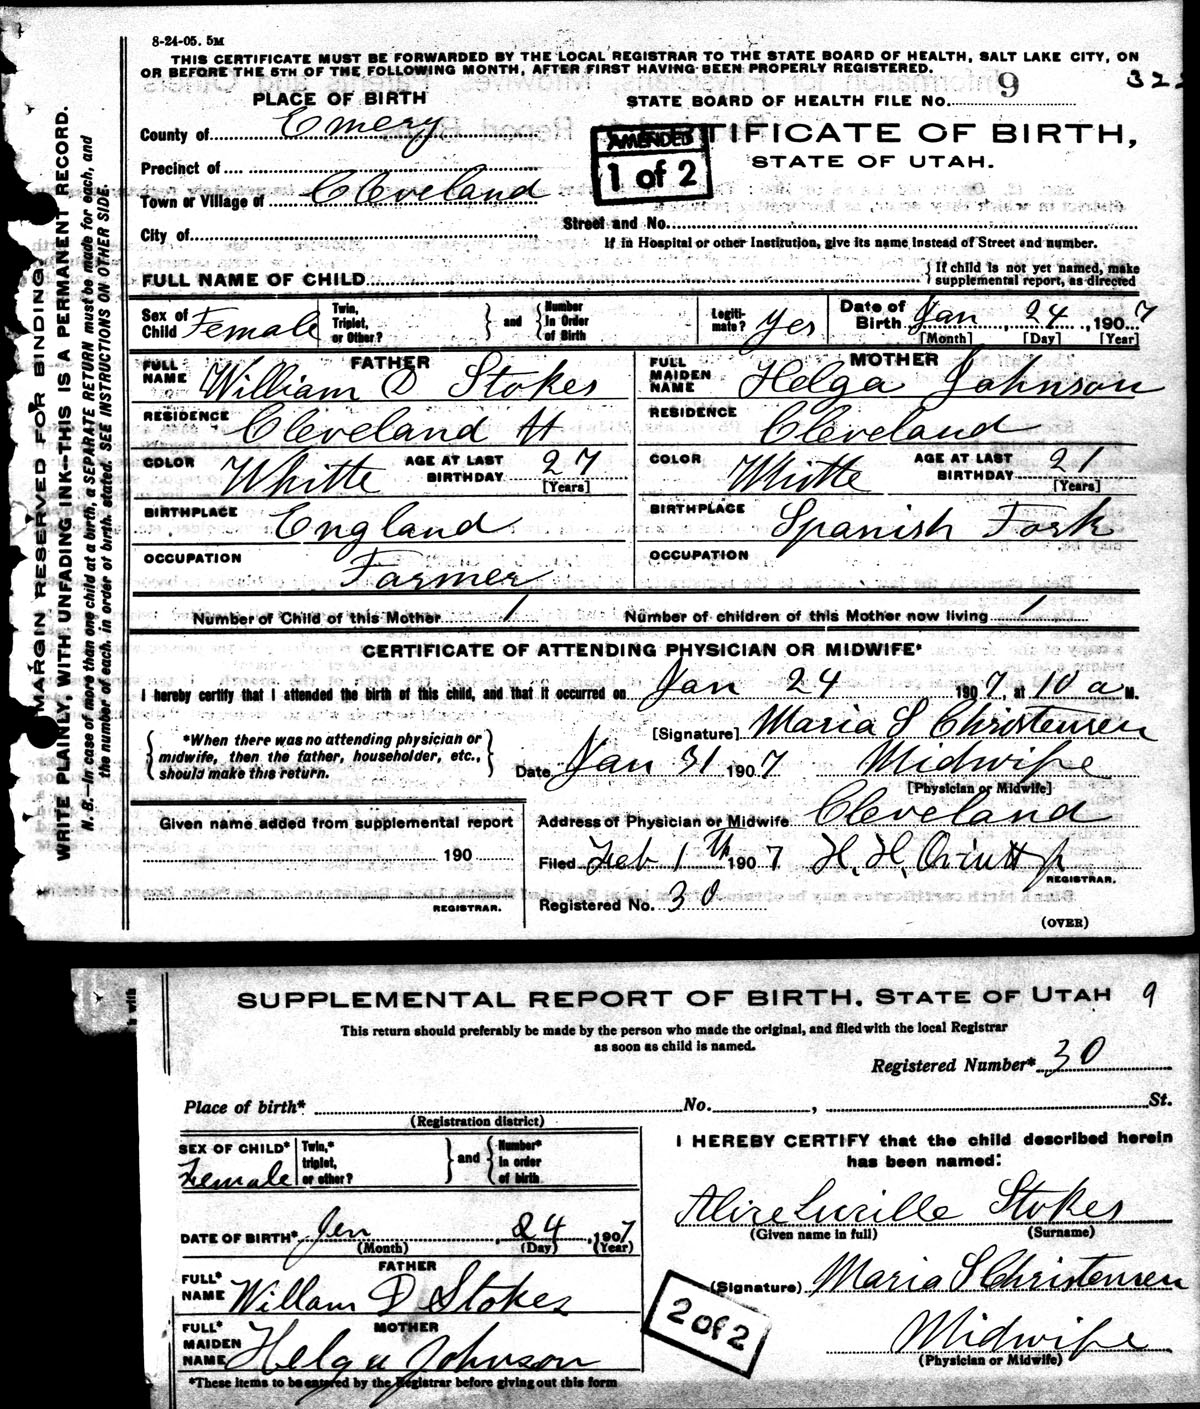 8-24-05. 5M
THIS CERTIFICATE MUST BE FORWARDED BY THE LOCAL REGISTRAR TO THE STATE BOARD OF HEALTH, SALT LAKE CITY, ON
OR BEFORE THE 5TH OF THE FOLLOWING MONTH, AFTER FIRST HAVING BEEN PROPERLY REGISTERED.
MARGIN RESERVED FOR BINDING.
WRITE PLAINLY, WITH UNFADING INK—THIS IS A PERMANENT RECORD.
N. B.—In case of more than one child at a birth, a SEPARATE RETURN must be made for each, and
the number of each, in order of birth, stated. SEE INSTRUCTIONS ON OTHER SIDE.
PLACE OF BIRTH
STATE BOARD OF HEALTH FILE NO. 9
County of Emery
AMENDED
1 of 2
TIFICATE OF BIRTH,
STATE OF UTAH.
Precinct of
Town or Village of Cleveland
Street and No.
City of
If in Hospital or other Institution, give its name instead of Street and number.
FULL NAME OF CHILD
} If child is not yet named, make
supplemental report, as directed
Sex of Child Female
Twin, Triplet, or Other?
} and { Number in Order of Birth
Legiti-mate? Yes
Date of Birth Jan 24, 1907
[Month] [Day] [Year]
FATHER
FULL NAME William D Stokes
MOTHER
FULL MAIDEN NAME Helga Johnson
RESIDENCE Cleveland
RESIDENCE Cleveland
COLOR Whitte AGE AT LAST BIRTHDAY 27 [Years]
COLOR Whitte AGE AT LAST BIRTHDAY 21 [Years]
BIRTHPLACE England
BIRTHPLACE Spanish Fork
OCCUPATION Farmer
OCCUPATION
Number of Child of this Mother 1 Number of children of this Mother now living 1
CERTIFICATE OF ATTENDING PHYSICIAN OR MIDWIFE*
I hereby certify that I attended the birth of this child, and that it occurred on Jan 24 1907, at 10 a M.
{ *When there was no attending physician or
midwife, then the father, householder, etc.,
should make this return. }
[Signature] Maria S Christensen
Date Jan 31 1907 Midwife
[Physician or Midwife]
Given name added from supplemental report
190
REGISTRAR.
Address of Physician or Midwife Cleveland
Filed Feb 1th 1907 H. H.
REGISTRAR.
Registered No. 30
(OVER)
SUPPLEMENTAL REPORT OF BIRTH. STATE OF UTAH 9
This return should preferably be made by the person who made the original, and filed with the local Registrar
as soon as child is named.
Registered Number* 30
Place of birth* No. , St.
(Registration district)
SEX OF CHILD* Female
Twin,* triplet, or other?
} and { Number* in order of birth
I HEREBY CERTIFY that the child described herein
has been named:
Alice Lucille Stokes
(Given name in full) (Surname)
DATE OF BIRTH* Jen 24, 1907
(Month) (Day) (Year)
FATHER
FULL* NAME Willam D Stokes
(Signature) Maria S Christensen
2 of 2
MOTHER
FULL* MAIDEN NAME Helga Johnson
Midwife
(Physician or Midwife)
*These items to be entered by the Registrar before giving out this form